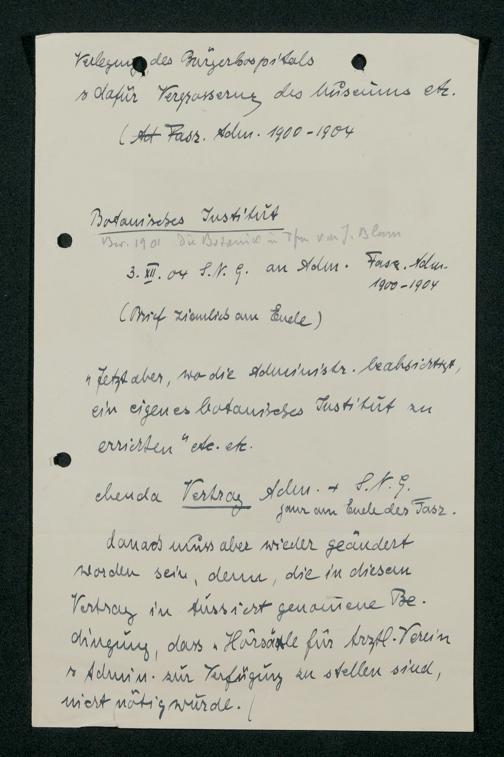 Verlegung des Bürgerhospitals
& dafür Vergrösserung des Museums etc.
(Ad Fasz. Adm. 1900-1904
Botanisches Institut
Ber. 1901 Die Botanik in Ffm von J. Blum
3. XII. 04 S.N.G. an Adm. Fasz. Adm.
1900-1904
(Brief ziemlich am Ende)
"Jetzt aber, wo die Administr. beabsichtigt,
ein eigenes botanisches Institut zu
errichten" etc. etc.
ebenda Vertrag Adm. + S.N.G.
ganz am Ende des Fasz.
danach muss aber wieder geändert
worden sein, denn, die in diesem
Vertrag in Aussicht genommene Be-
dingung, dass "Hörsäle für ärztl. Verein
& Admin. zur Verfügung zu stellen sind,
nicht nötig wurde.